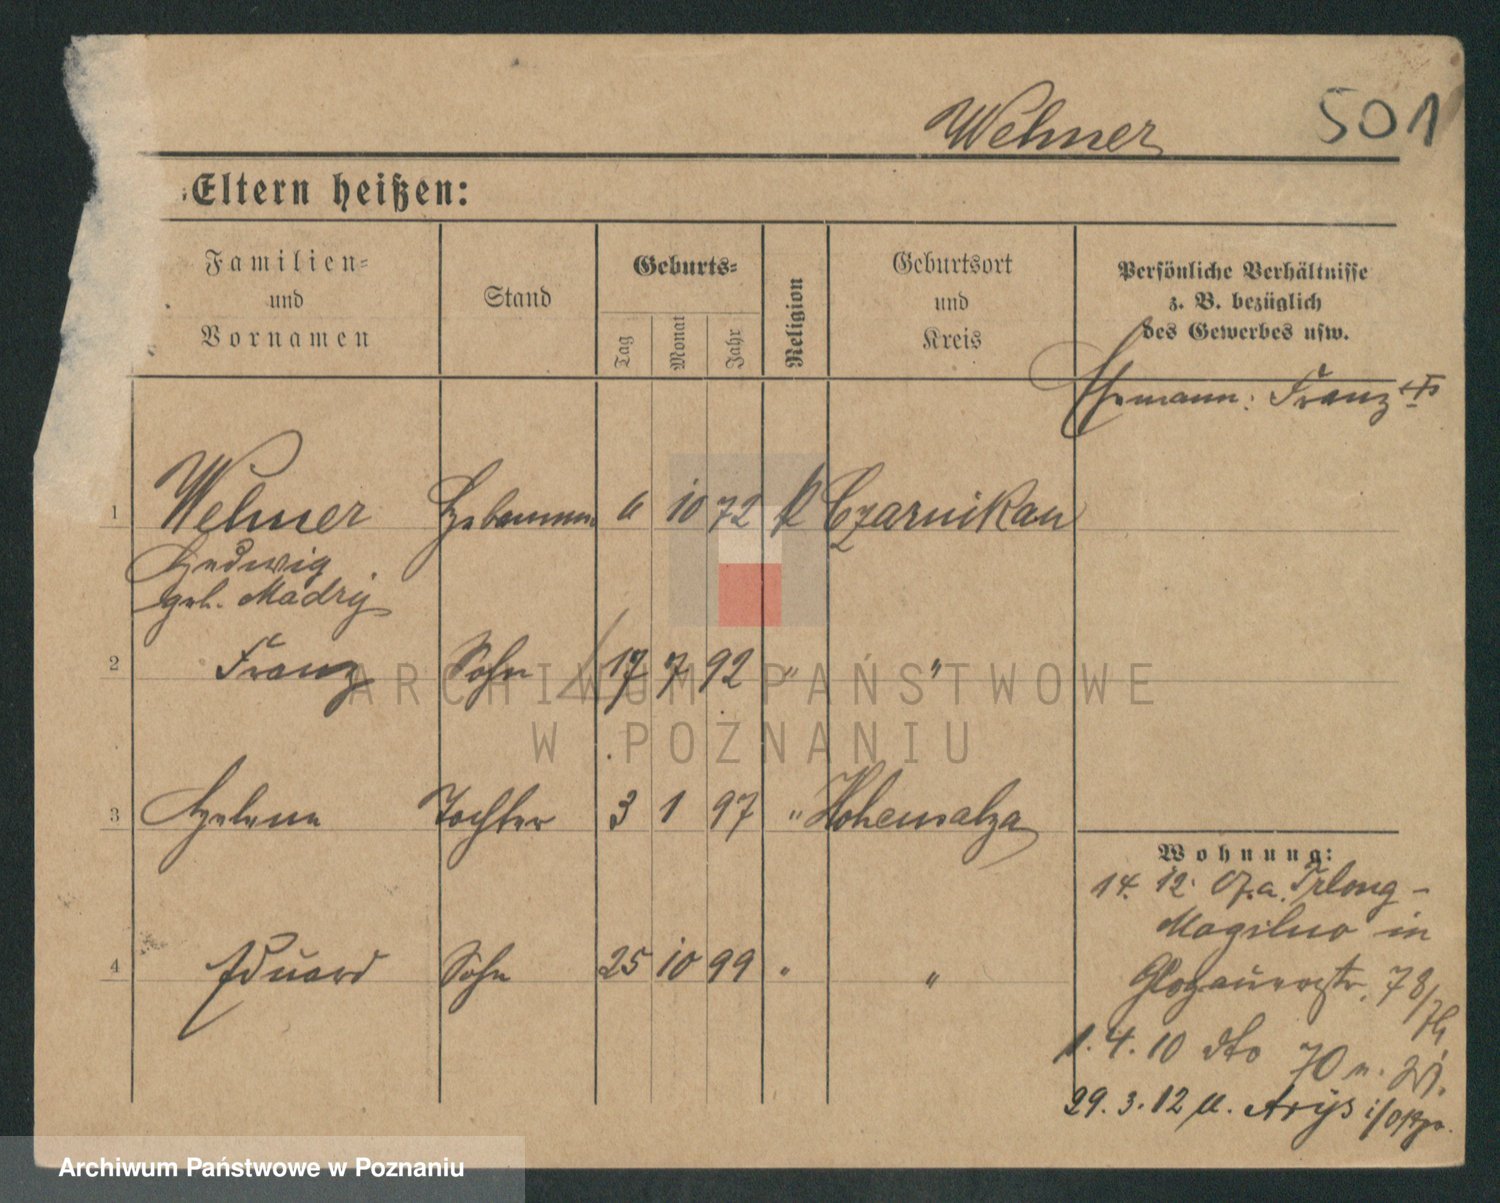 Wehner 501
Eltern heißen:
Familien-
und
Vornamen
Stand
Geburts-
Tag
Monat
Jahr
Religion
Geburtsort
und
Kreis
Persönliche Verhältnisse
z. B. bezüglich
des Gewerbes usw.
Ehemann: Franz
1 Wehner Hebamme 6 10 72 k Czarnikau
Hedwig
geb. Madry
2 Franz Sohn 17 7 92 " "
3 Helene Tochter 3 1 97 " Hohensalza
4 Eduard Sohn 25 10 99 " "
Wohnung:
14. 12. 07. a. Trlong-
Mogilno in
Glogauerstr. 78/
1. 4. 10 dto 70 n.
29. 3. 12 n. Arys i/Ostpr.
ARCHIWUM PAŃSTWOWE
W POZNANIU
Archiwum Państwowe w Poznaniu